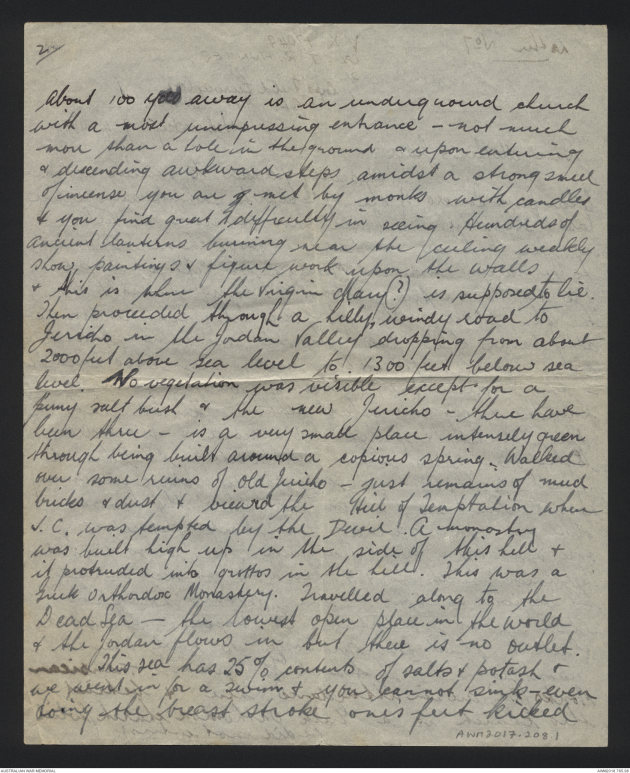 2
About 100 yds away is an underground church
with a most unimpressing entrance - not much
more than a hole in the ground & upon entering
& descending awkward steps amidst a strong smell
of incense you are met by monks with candles
& you find great difficulty in seeing. Hundreds of
ancient lanterns burning near the ceiling weakly
show paintings & figure work upon the walls
& this is where the Virgin Mary (?) is supposed to lie.
Then proceeded through a hilly, windy road to
Jericho in the Jordan Valley dropping from about
2000 feet above sea level to 1300 feet below sea
level. No vegetation was visible except for a
puny salt bush & the new Jericho - there have
been three - is a very small place intensely green
through being built around a copious spring. Walked
over some ruins of old Jericho - just remains of mud
bricks & dust & viewed the Hill of Temptation where
J.C. was tempted by the Devil. A monastry
was built high up in the side of this hill &
it protruded into grottos in the hill. This was a
Greek Orthodox Monastery. Travelled along to the
Dead Sea - the lowest open place in the world
& the Jordan flows in but there is no outlet.
This sea has 25% contents of salts & potash &
we went in for a swim & you cannot sink - even
doing the breast stroke one's feet kicked
AWM2017.208.1
AUSTRALIAN WAR MEMORIAL